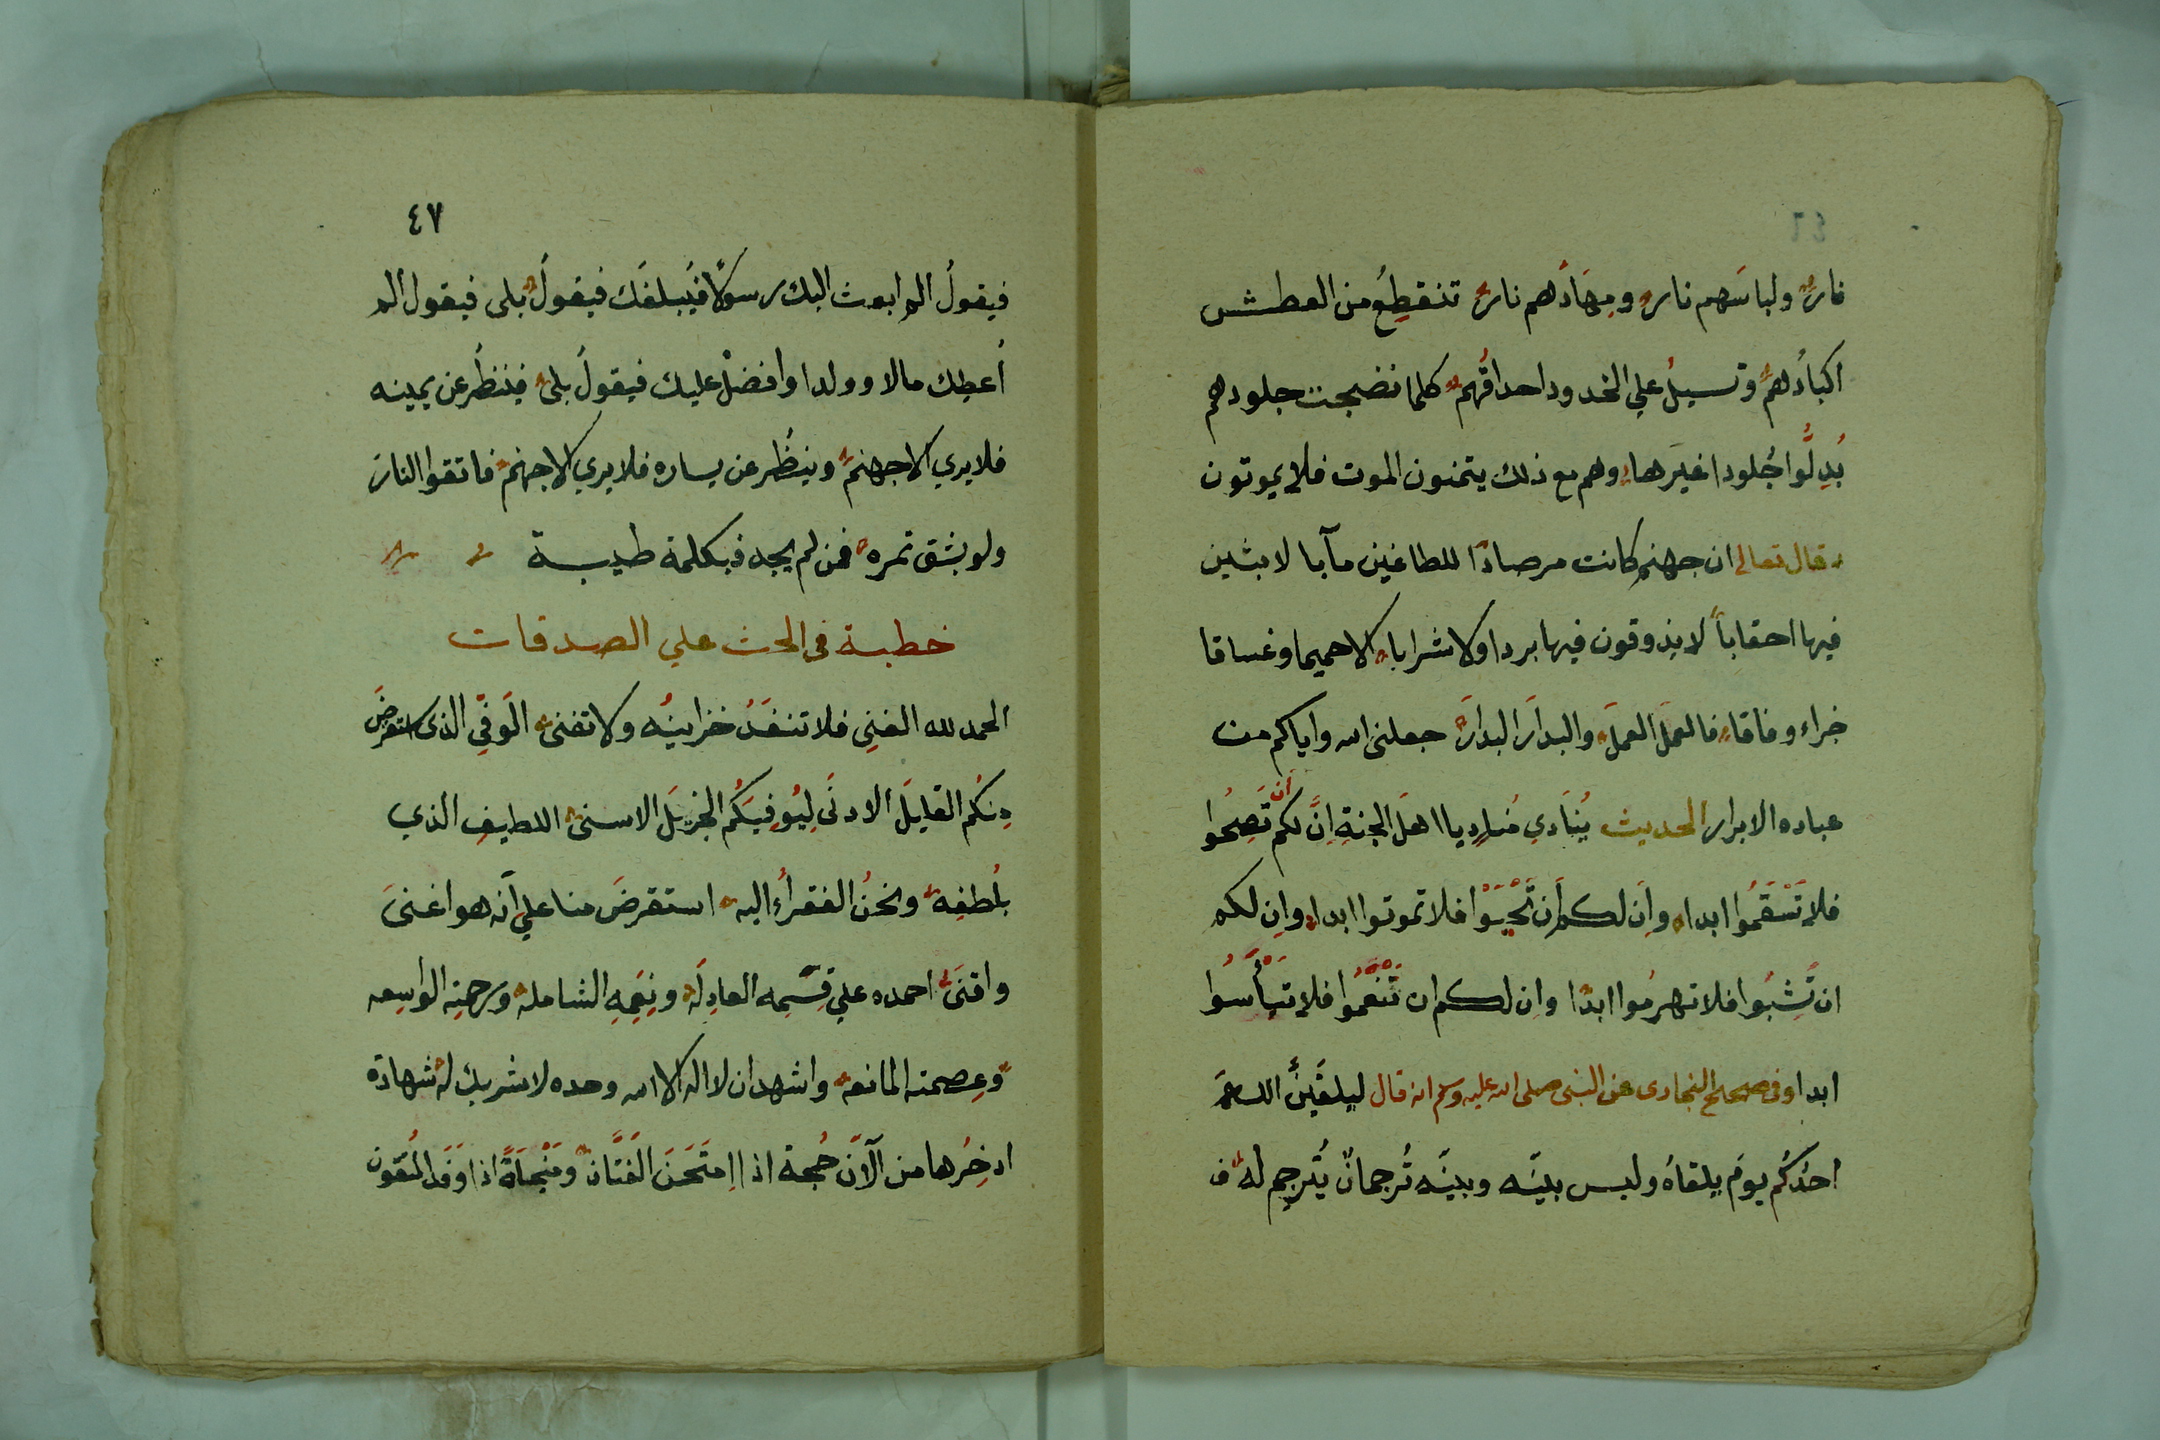 ٤٦
نار ولباسَهم نار ومِهَادُهم نار تنقطِعُ من العطش
اكبادُهم وتسيلُ علي الخدود احداقُهم كلما نضجت جلودهم
بُدِلُّوا جُلودا غيَرها وهم مع ذلك يتمنون الموت فلا يموتون
قال تعالى ان جهنم كانت مرصادًا للطاغين مآبا لابثين
فيها احقاباً لا يذوقون فيها بردا ولا شرابا الا حميما وغساقا
جزاء وفاقا فالعملَ العملَ والبدارَ البدارَ جعلني الله واياكم من
عباده الابرار الحديث يُنَادِي مُنادٍ يا اهلَ الجنةِ اِنَّ لكم أن تَصِحُوا
فلا تَسْقَمُوا ابدا واِن لكم أن تَحْيَوْا فلا تموتوا ابدا واِن لكم
ان تَشِبُوا فلا تهرمُوا ابدًا واِن لكم ان تَنْعَمُوا فلا تَيْأَسُوا
ابدا وفي صحيح البخارى عن النبى صلى الله عليه وسلم انه قال ليلقَيَنَّ الله
احدُكُم يومَ يلقاهُ وليس بينَه وبينَه تُرجمانٌ يُتَرجِم له ف
٤٧
فيقولُ الم ابعث اليك رسولًا فيُبلغَك فيقولُ بلى فيقول الم
أُعطِك مالا وولدا وافضلْ عليك فيقولُ بلى فينظُر عن يمينه
فلا يري الا جهنم وينظُر عن يساره فلا يري الا جهنم فاتقوا النار
ولو بشق تمره فمن لم يجد فبكلمة طيبة
خطبة فى الحث علي الصدقات
الحمد لله الغنِي فلا تنفَدُ خزاينُه ولا تفنى الوَفِّيِ الذى استقرضَ
مِنكُم القليلَ الادنَى لِيُوفِيَكُم الجزيلَ الاسنى اللطيفِ الذي
بلُطفِه ونحنُ الفقراُء اليه استقرضَ منا علي أنه هو اغنىَ
واقنَى احمده علي قِسَمِه العادِلَة ونِعَمِهِ الشامله ورحمتِه الواسِعه
وعِصمته المانعه واشهد ان لا اله الا الله وحده لا شريك له شهادة
ادخِرُها من الآنَ حُجة اذا اِمتَحَنَ الفَتَّانَ ومَنْجَاةً اذا وَفَدَ المُتقون